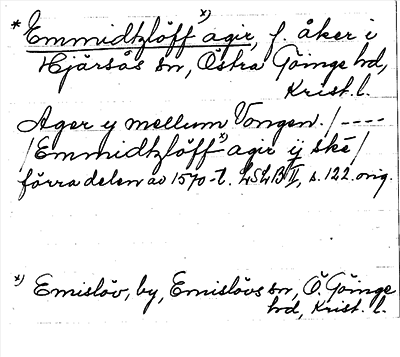 * Emmidtzlöff x) agir, f. åker i
Hjärsås sn, Östra Göinge hd,
Krist. l.
Ager y mellum Vongen. /----
/Emmidtzlöff x) agir ij skē/
förra delen av 1570-t. LSLB II, s. 122. orig.
x) Emislöv, by, Emislövs sn, Ö. Göinge
hd, Krist. l.